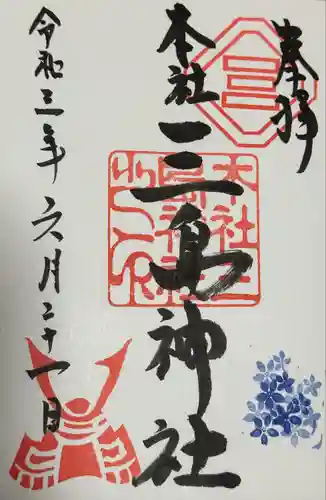 奉拝
本社
三島神社
令和三年六月二十一日
本社三島神社之印